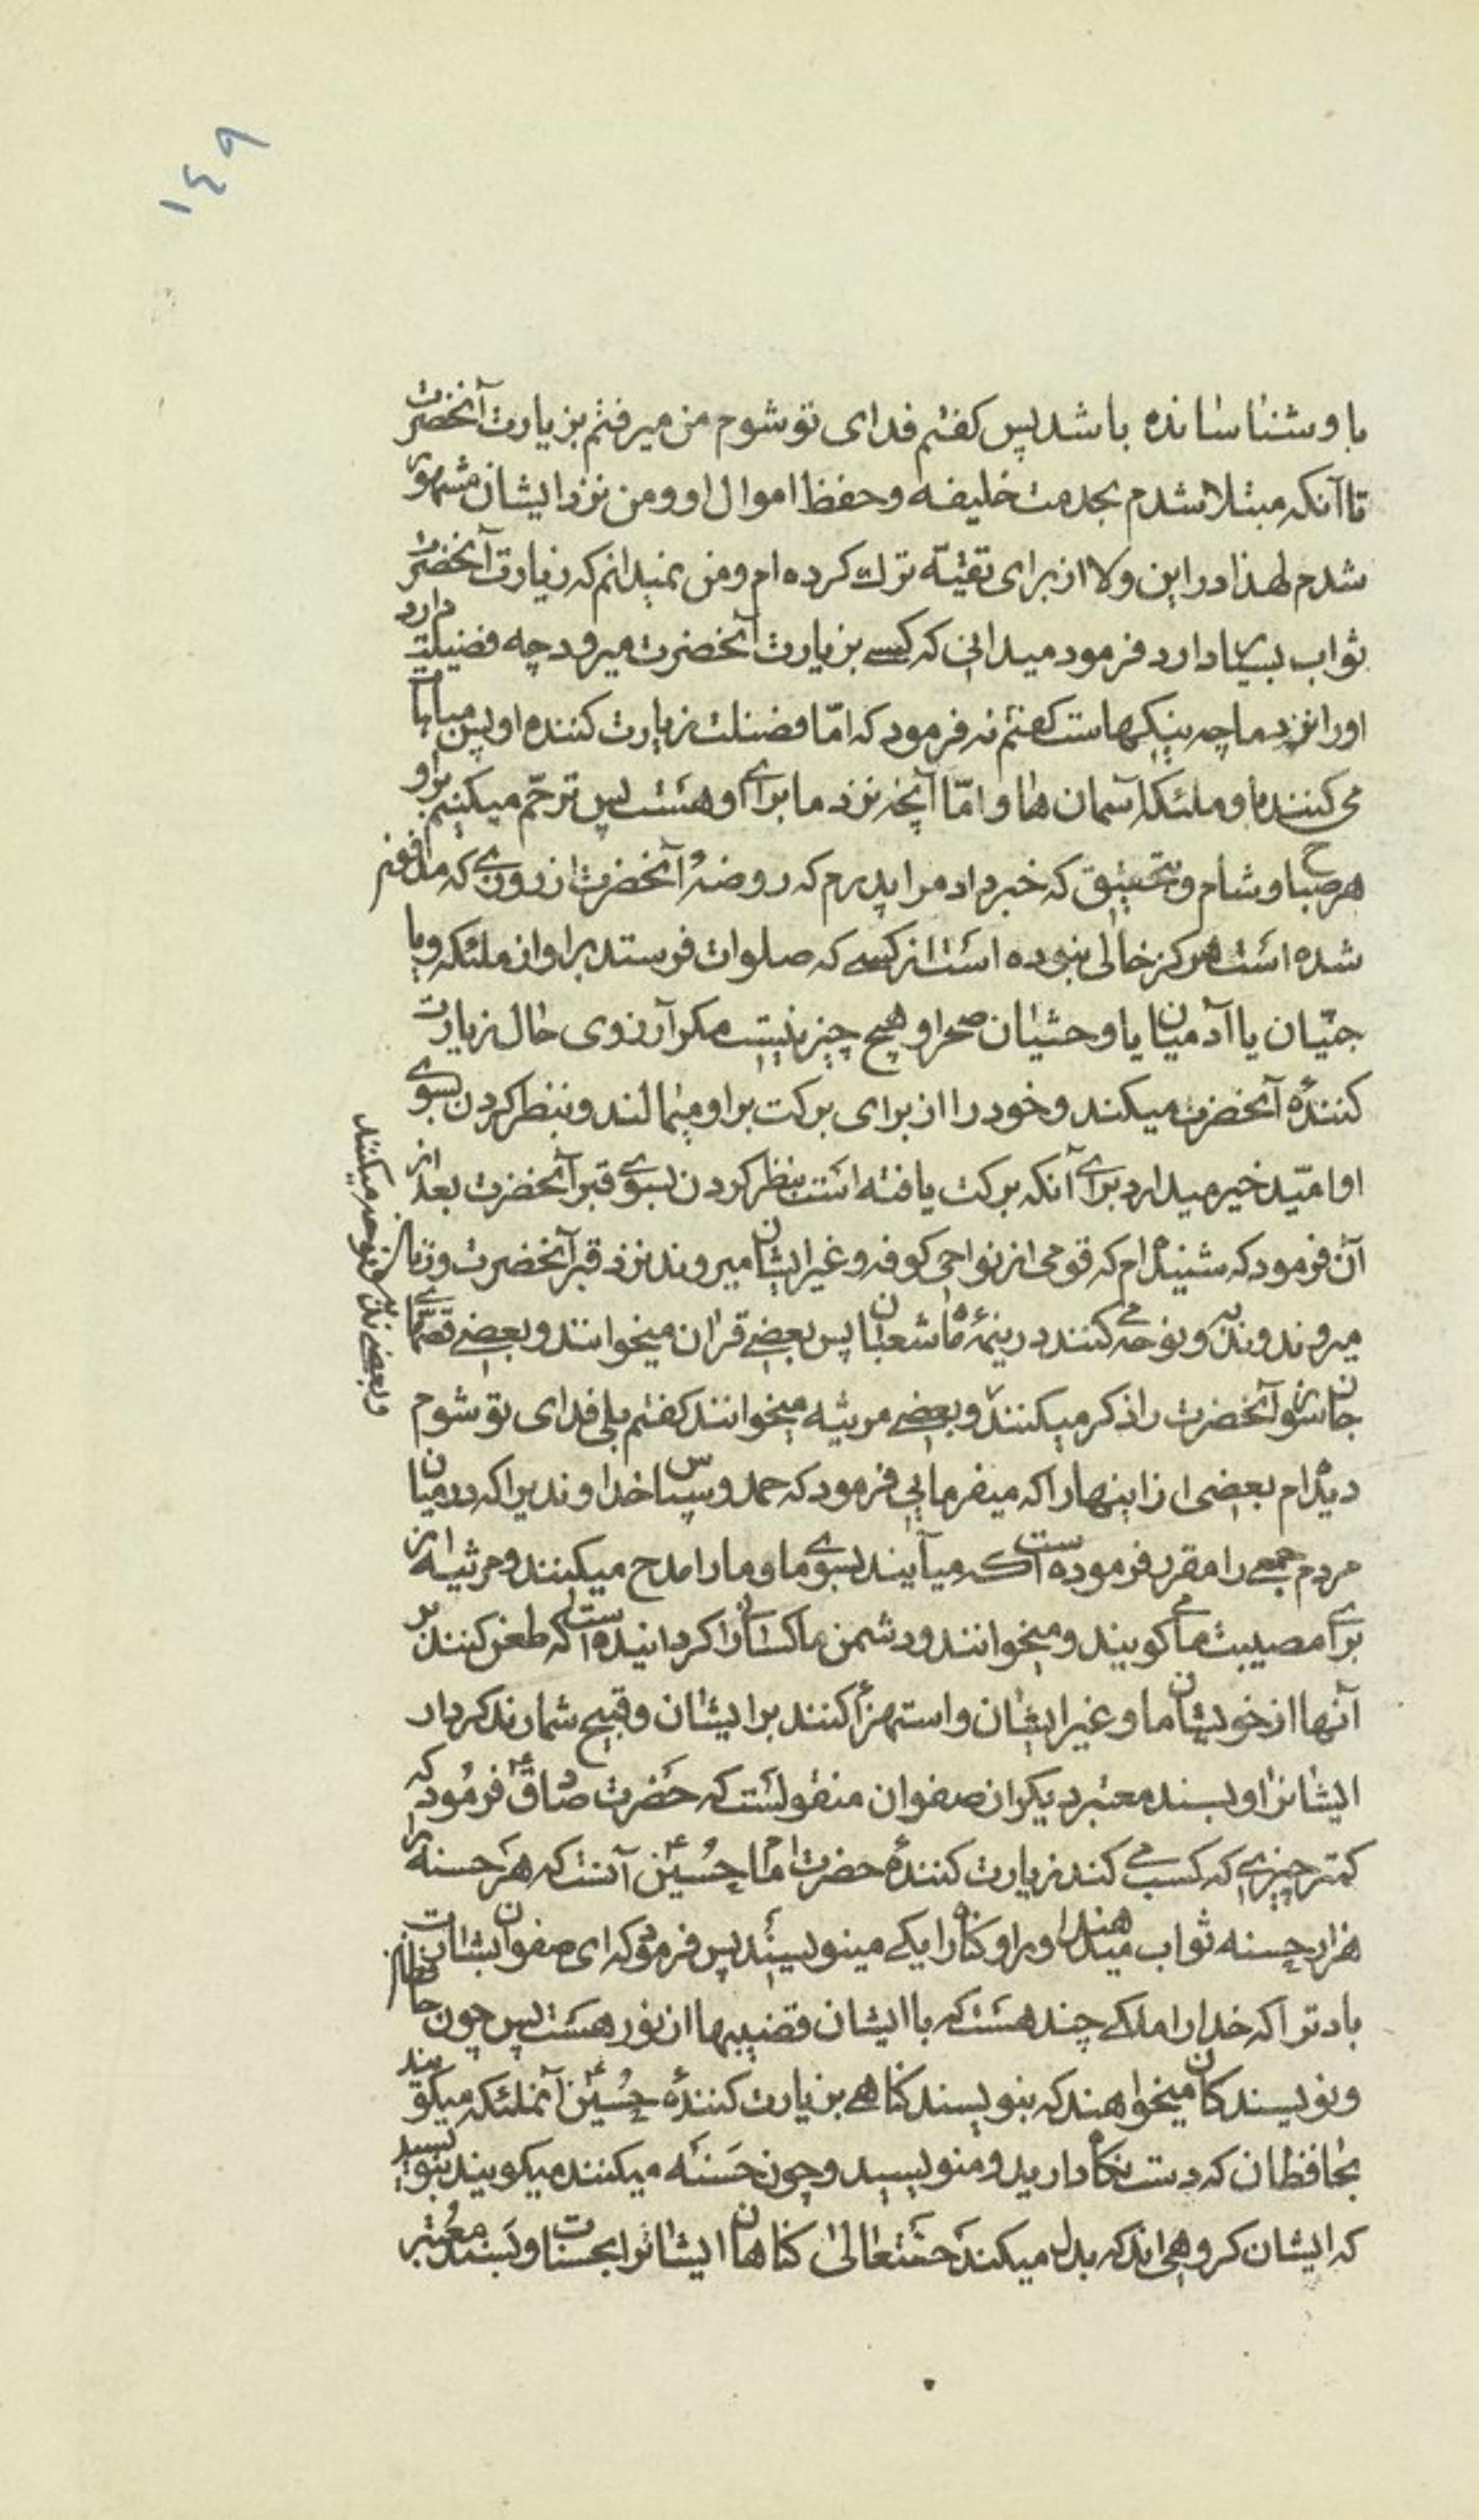 ١٤٩
باو شناسانده باشد پس کفتم فدای تو شوم من میرفتم بزیارت آنحضرت
تا آنکه مبتلا شدم بخدمت خلیفه و حفظ اموال او و من نزد ایشان مشهور
شدم لهذا در این ولا از برای تقیّه ترك کرده ام و من نمیدانم که زیارت آنحضرت
ثواب بسیار دارد فرمود میدانی که کسے بزیارت آنحضرت میرود چه فضیلت دارد
او را نزد ما چه نیکیهاست کفتم نه فرمود که امّا فضیلت زیارت کننده او پس مباهات
می کنند باو ملئکهٔ آسمان ها و امّا آنچه نزد ما برای او هست پس ترحّم میکنیم براو
هر صباح و شام و بتحقیق که خبر داد مرا پدرم که روضهٔ آنحضرت از روزی که مدفون
شده است هرکز خالی نبوده است از کسے که صلوات فرستد بر او از ملئکه و یا
جنّیان یا آدمیان یا وحشیان صحرا و هیچ چیز نیست مکر آرزوی حال زیارت
کنندهٔ آنحضرت میکند و خود را از برای برکت بر او میمالند و بنظر کردن بسوی
او امّید خیر میدارد برای آنکه برکت یافته است بنظر کردن بسوی قبر آنحضرت بعد از
آن فرمود که شنیده ام که قومی از نواحی کوفه و غیر ایشان میروند نزد قبر آنحضرت و زنان
میروند و ندبه و نوحه می کنند در نیمهٔ ماه شعبان پس بعضے قران میخوانند و بعضے قصّهای
جانسوز آنحضرت را ذکر میکنند و بعضے مرثیه میخوانند کفتم بلی فدای تو شوم
و بعضے ندبه و نوحه میکنند
دیده ام بعضی از اینها را که میفرمایی فرمود که حمد و سپاس خداوندیرا که در میان
مردم جمعے را مقرر فرموده است که میآیند بسوی ما و ما را مدح میکنند و مرثیه از
برای مصیبت ما می کویند و میخوانند و دشمن ما کسانرا کردانیده است که طعن کنند بر
آنها از خویشان ما و غیر ایشان و استهزأ کنند بر ایشان و قبیح شمارند کردار
ایشانرا و بسند معتبر دیکر از صفوان منقولست که حضرت صادق فرمود که
کمتر چیزی که کسب می کند زیارت کنندهٔ حضرت امام حسین آنست که هر حسنه را
هزار حسنه ثواب میدهند او را و کناه را یکے مینویسند پس فرمود که ای صفوان بشارت
باد ترا که خدا را ملکے چند هست که با ایشان قضیبها از نور هست پس چون حافظان
و نویسندکان میخواهند که بنویسند کناهے بزیارت کنندهٔ حسین آنملئکه میکویند
بحافظان که دست نکاه دارید و منویسید و چون حسنه میکنند میکویند بنویسید
که ایشان کروهی اند که بدل میکند حقتعالی کناهان ایشانرا بحسنات و بسند معتبر